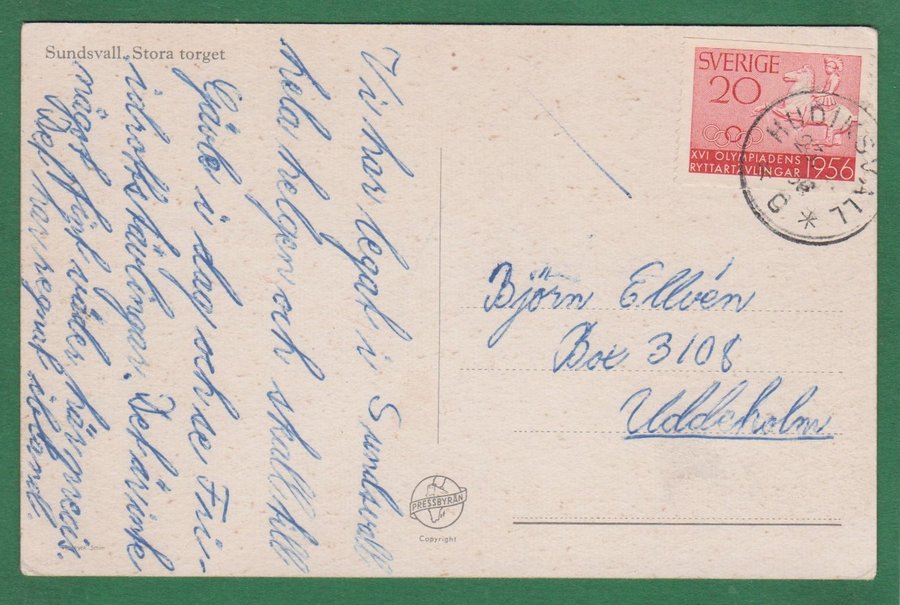 Sundsvall. Stora torget
Vi har legat i Sundsvall
hela helgen och skall till
Gävle i dag och se Fri-
idrottstävlingar. Det är inte
något fint väder här precis.
har regnat ibland.
SVERIGE
20
XVI OLYMPIADENS
RYTTARTÄVLINGAR 1956
HUDIKSVALL
Björn Ellvén
Box 3108
Uddeholm
PRESSBYRÅN
Copyright